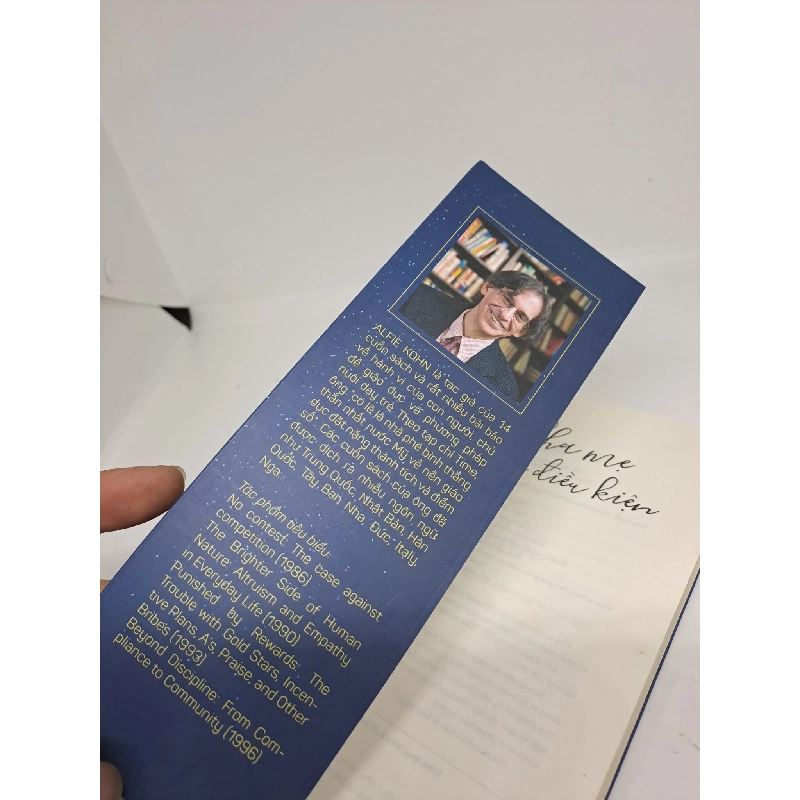 ALFIE KOHN là tác giả của 14
cuốn sách và rất nhiều bài báo
về hành vi của con người, chủ
đề giáo dục và phương pháp
nuôi dạy trẻ. Theo tạp chí Time,
ông "có lẽ là nhà phê bình thẳng
thắn nhất nước Mỹ về nền giáo
dục đặt nặng thành tích và điểm
số". Các cuốn sách của ông đã
được dịch ra nhiều ngôn ngữ
như Trung Quốc, Nhật Bản, Hàn
Quốc, Tây Ban Nha, Đức, Italy,
Nga...
Tác phẩm tiêu biểu:
No contest: The case against
competition (1986)
The Brighter Side of Human
Nature: Altruism and Empathy
in Everyday Life (1990)
Punished by Rewards: The
Trouble with Gold Stars, Incen-
tive Plans, A's, Praise, and Other
Bribes (1993)
Beyond Discipline: From Com-
pliance to Community (1996)
mẹ
điều kiện